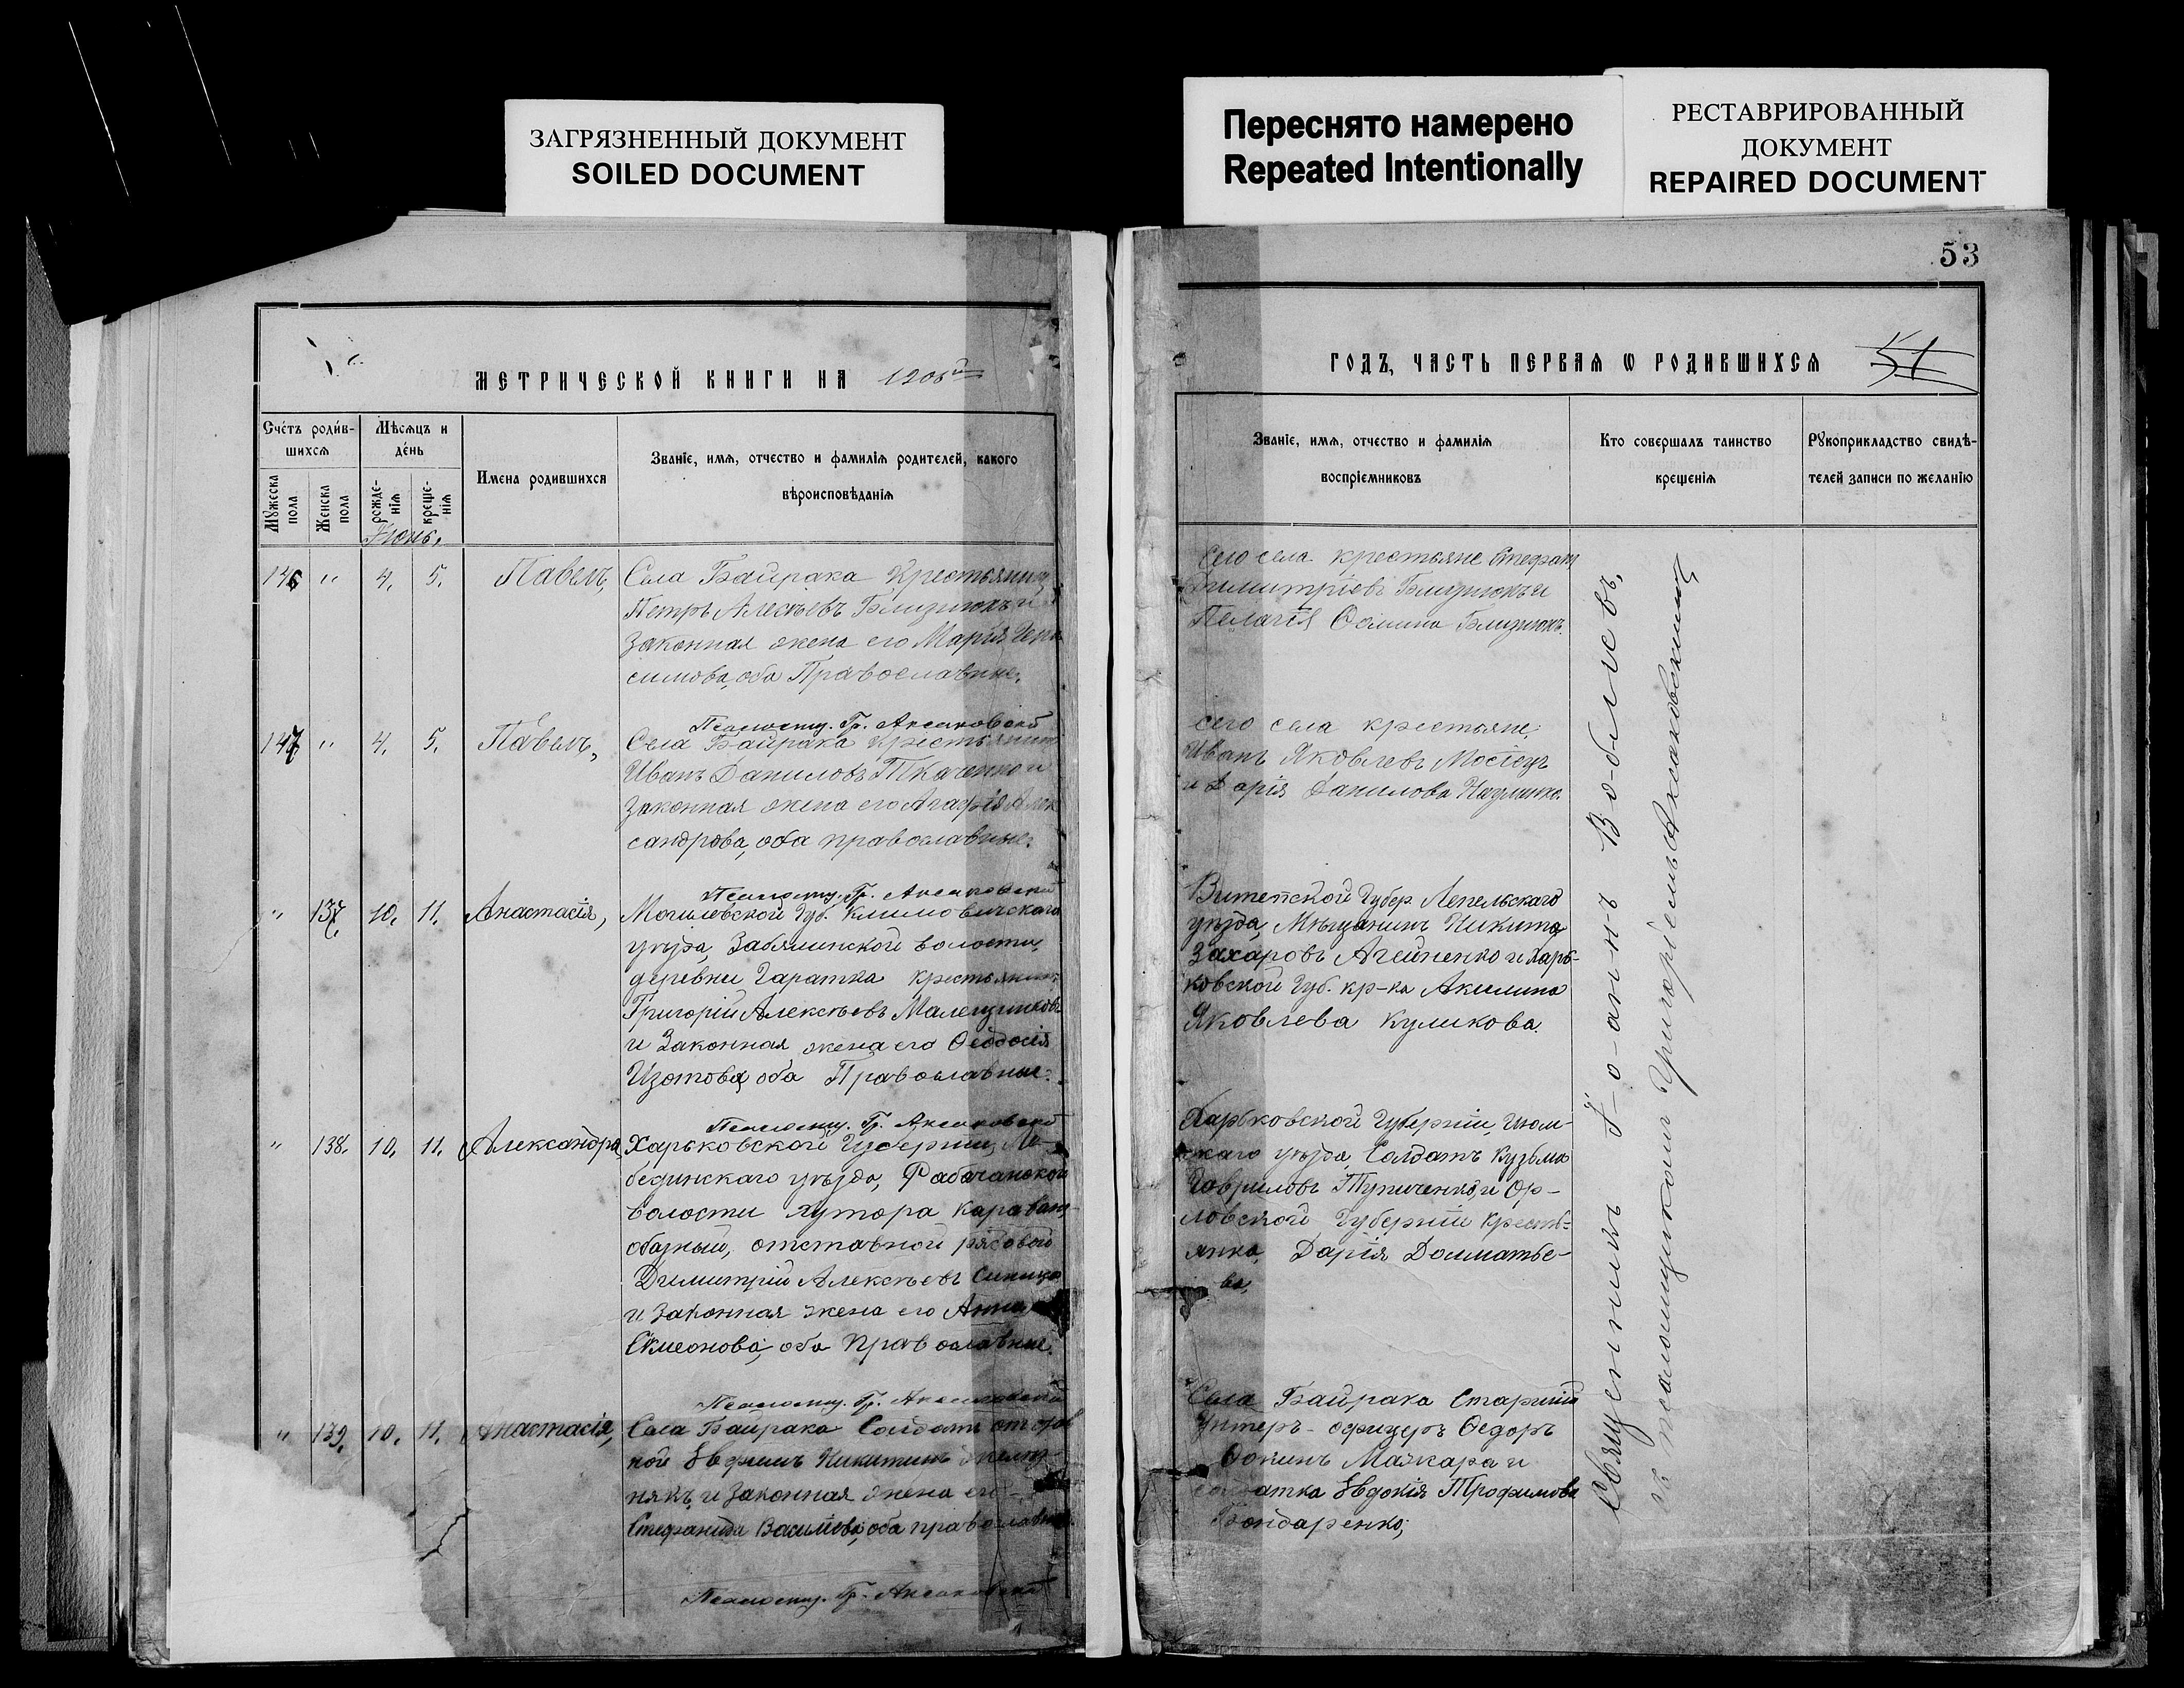 ЗАГРЯЗНЕННЫЙ ДОКУМЕНТ
SOILED DOCUMENT
Переснято намерено
Repeated Intentionally
РЕСТАВРИРОВАННЫЙ
ДОКУМЕНТ
REPAIRED DOCUMENT
53
МЕТРИЧЕСКОЙ КНИГИ НА
Счетъ родив-
шихся
Мѣсяцъ и
день
Имена родившихся
Званіе, имя, отчество и фамилія родителей, какого
вѣроисповѣданія
Мужеска
пола
Женска
пола
рожде-
нія
креще-
нія
Іюнь.
146 " 4. 5. Павелъ,
Села Байрака Крестьянинъ
Петръ Алексѣевъ Близнюкъ и
Законная жена его Марія Гера
симова, оба Православные.
Псаломщ. Гр. Аксаковскій
147 " 4. 5. Павелъ,
Села Байрака Крестьянинъ
Иванъ Даниловъ Ткаченко и
Законная жена его Агафія Алек
сандрова, оба православные.
Псаломщ. Гр. Аксаковскій
" 137. 10. 11. Анастасія,
Могилевской Губ. Климовичскаго
уѣзда, Забялинской волости,
деревни Гаратка крестьянинъ
Григорій Алексѣевъ
и Законная жена его Ѳеодосія
Изотова, оба Православные.
Псаломщ. Гр. Аксаковскій
" 138. 10. 11. Александра
Харьковской Губерніи, Ле-
бединскаго уѣзда,
волости хутора
отставной рядовой
Димитрій Алексѣевъ Синица
и Законная жена его Анна
Симеонова, оба Православные.
Псаломщ. Гр. Аксаковскій
" 139. 10. 11. Анастасія,
Села Байрака Солдатъ
Евфимъ Никитинъ
и Законная жена его
Стефанида Васильева, оба православные
Псаломщ. Гр. Аксаковскій
ГОДЪ, ЧАСТЬ ПЕРВАЯ Ѡ РОДИВШИХСЯ
51
Званіе, имя, отчество и фамилія
воспріемниковъ
Кто совершалъ таинство
крещенія
Рукоприкладство свидѣ-
телей записи по желанію
Сего села крестьяне Стефанъ
Димитріевъ Близнюкъ и
Пелагія Ѳомина Близнюкъ.
Сего села крестьяне,
Иванъ Яковлевъ Мосіецъ
и Дарія Данилова
Витепской Губер. Лепельскаго
уѣзда, Мѣщанинъ Никита
Захаровъ Агейненко и Харь-
ковской Губ. кр-ка Акилина
Яковлева Куликова.
Харьковской Губерніи, Изюм-
скаго уѣзда, Солдатъ Кузьма
Гавриловъ Тупиченко, и Ор-
ловской Губерніи Кресть-
янка, Дарія Долматье-
ва,
Села Байрака Старшій
Унтеръ-офицеръ Ѳедоръ
Ѳокинъ Маякара и
солдатка Евдокія Трофимова
Бондаренко,
Священникъ І-о-аннъ Во-б-ле-въ,
съ псаломщикомъ Григоріемъ Аксаковскимъ